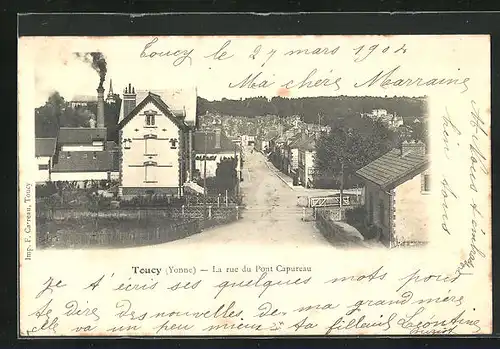 Toucy le 27 mars 1904
Ma chère Marraine
Imp. F. Carreau, Toucy
Toucy (Yonne) — La rue du Pont Capureau
Je t'écris ces quelques mots pour
te dire des nouvelles de ma grand mère
elle va un peu mieux ta filleul Léontine